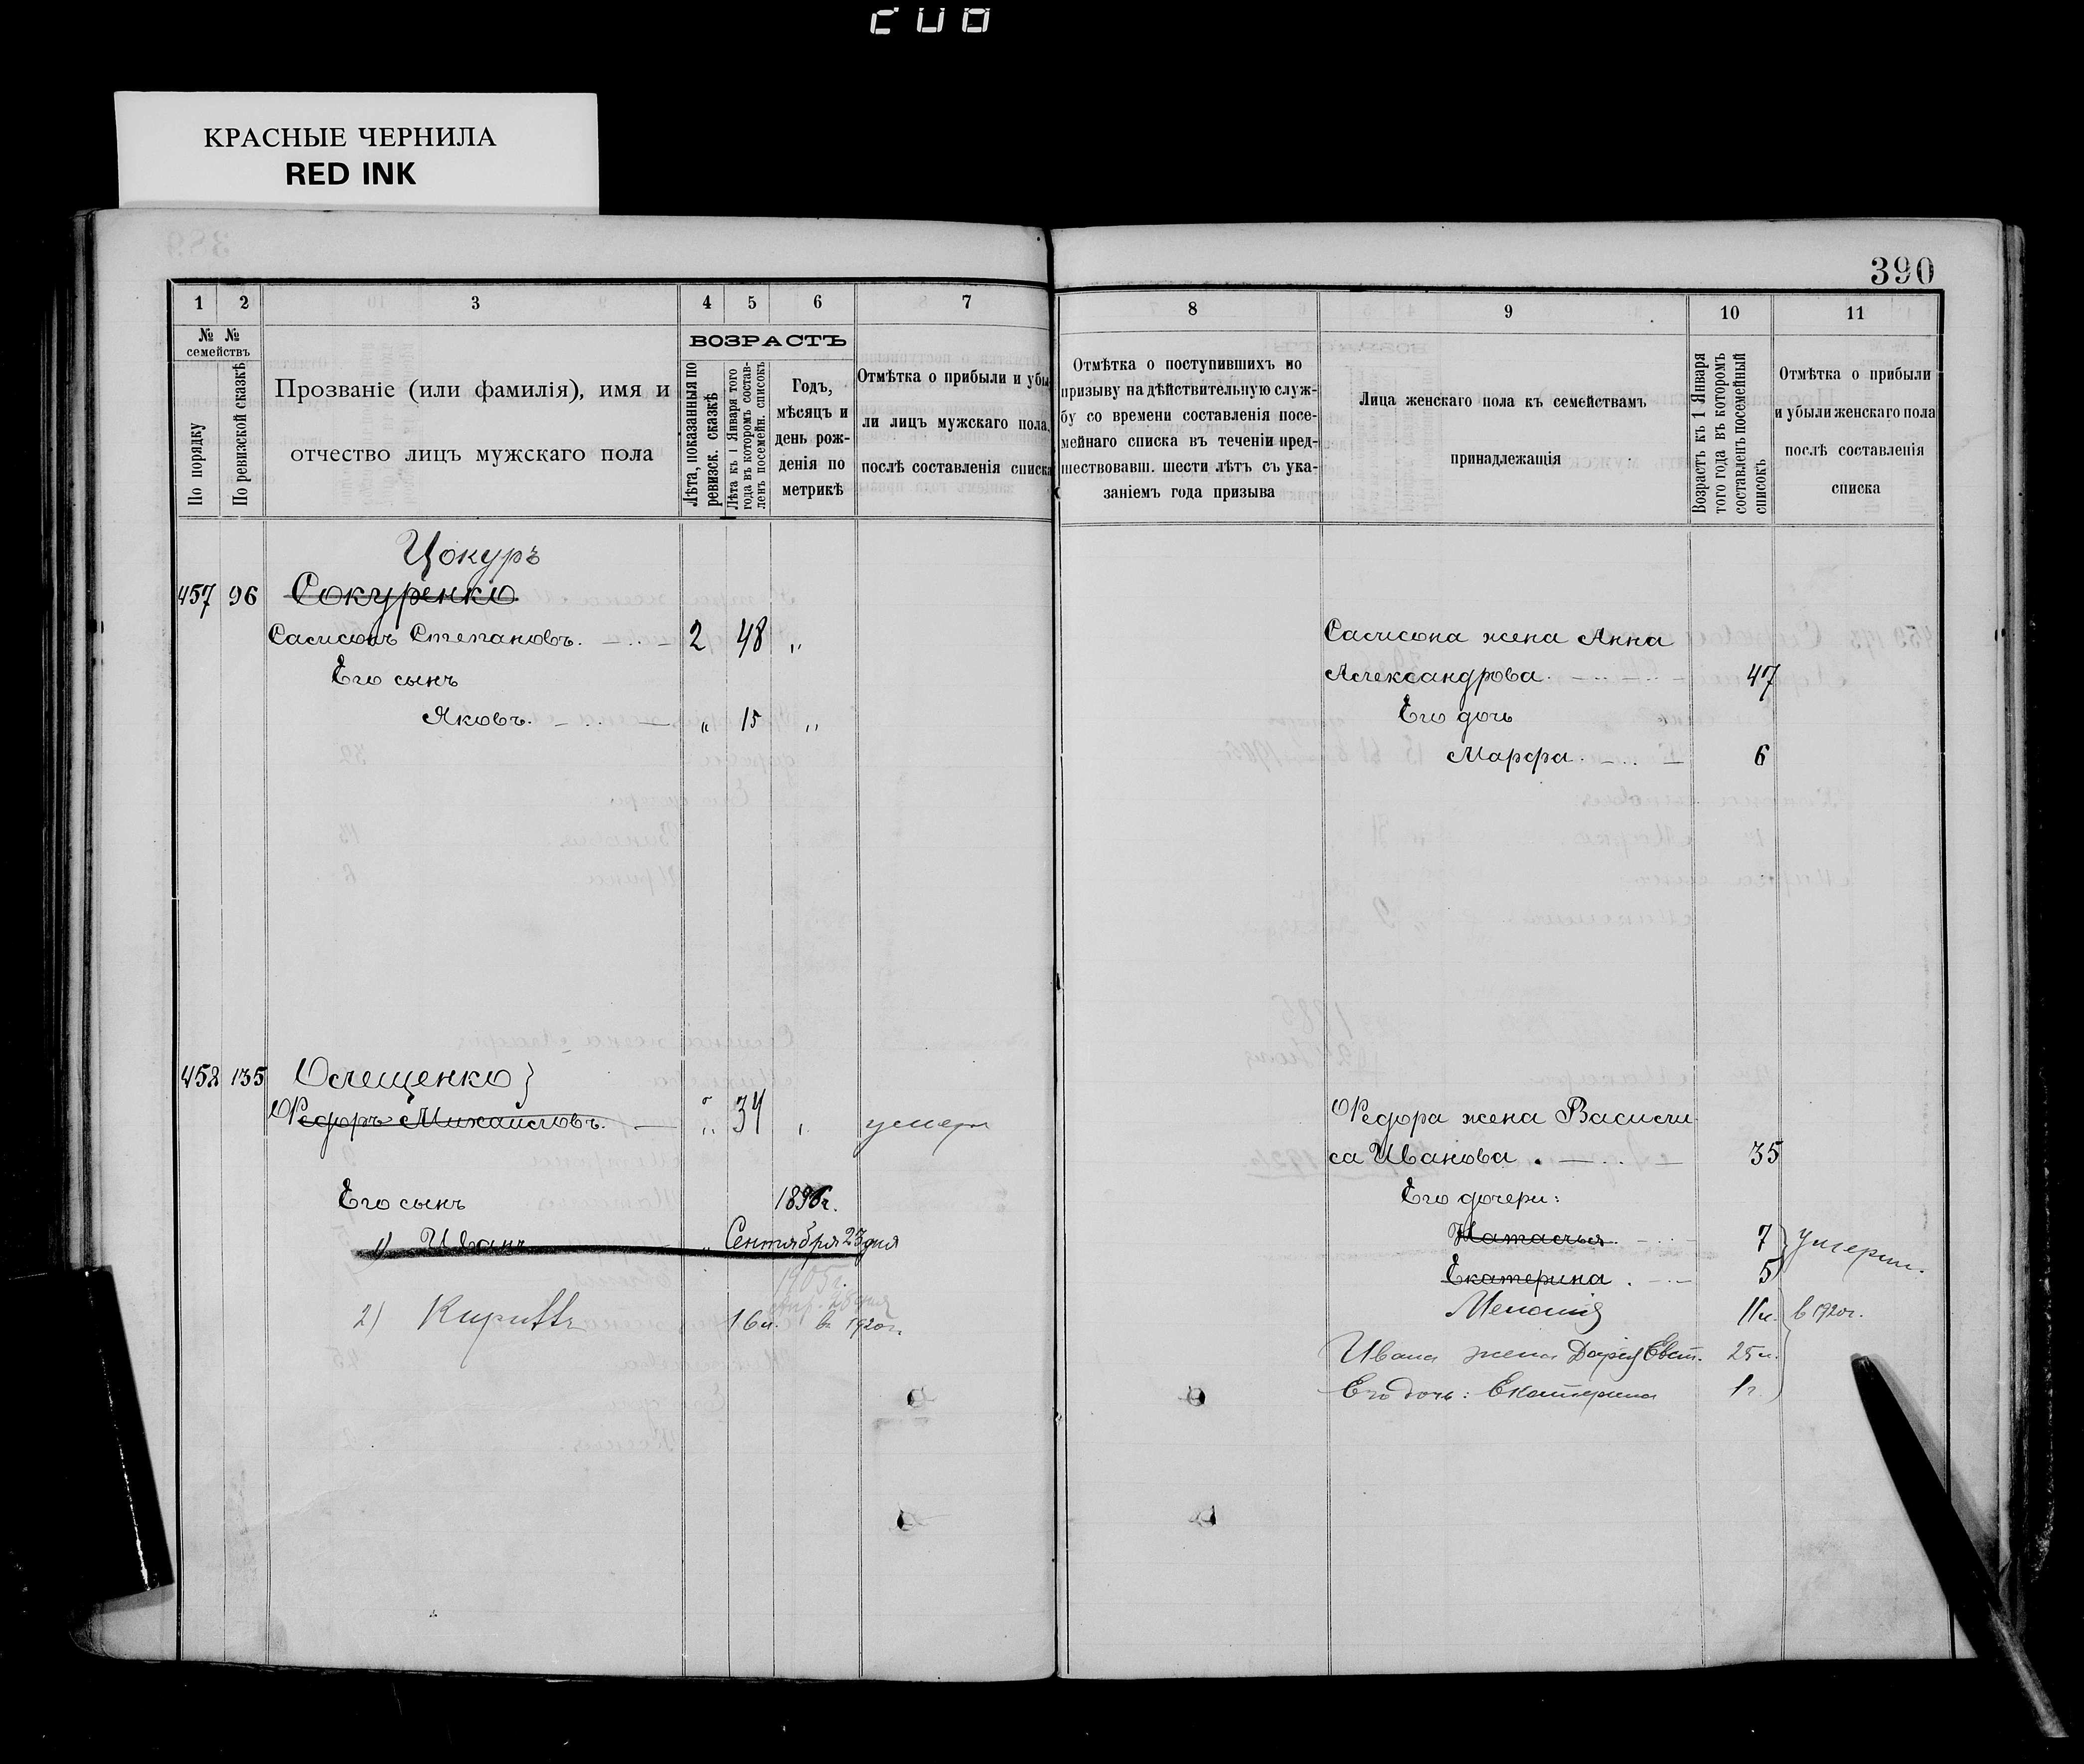 208
КРАСНЫЕ ЧЕРНИЛА
RED INK
1 2 3 4 5 6 7
№ № семействъ
По порядку
По ревизской сказкѣ
Прозваніе (или фамилія), имя и
отчество лицъ мужскаго пола
ВОЗРАСТЪ
Лѣта, показанныя по
ревизск. сказкѣ
Лѣта къ 1 Января того
года въ которомъ состав-
ленъ посемейн. списокъ
Годъ,
мѣсяцъ и
день рож-
денія по
метрикѣ
Отмѣтка о прибыли и убы-
ли лицъ мужскаго пола,
послѣ составленія списка
Цокуръ
457 96 Сокуренко
Самсонъ Степановъ. 2 48 „
Его сынъ
Яковъ. „ 15 „
458 135 Олещенко}
Ѳедоръ Михайловъ. „ 34 умеръ
Его сынъ 1896г.
1) Иванъ „ Сентября 23 дня
1905г.
2) Кириллъ 16л. въ 1920г.
390
8 9 10 11
Отмѣтка о поступившихъ по
призыву на дѣйствительную служ-
бу со времени составленія посе-
мейнаго списка въ теченіи пред-
шествовавш. шести лѣтъ съ ука-
заніемъ года призыва
Лица женскаго пола къ семействамъ
принадлежащія
Возрастъ къ 1 Января
того года въ которомъ
составленъ посемейный
списокъ
Отмѣтка о прибыли
и убыли женскаго пола
послѣ составленія
списка
Самсона жена Анна
Александрова. 47
Его дочь
Марфа. 6
Ѳедора жена Васили-
са Иванова. 35
Его дочери:
Наталья. 7 } умерли.
Екатерина. 5
11л. } в 1920г.
Ивана жена Дарія Евст. 25 л.
Его дочь: Екатерина 1г.